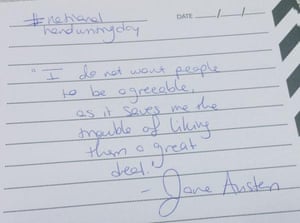 #national
handwritingday
DATE / /
"I do not want people
to be agreeable,
as it saves me the
trouble of liking
them a great
deal."
- Jane Austen